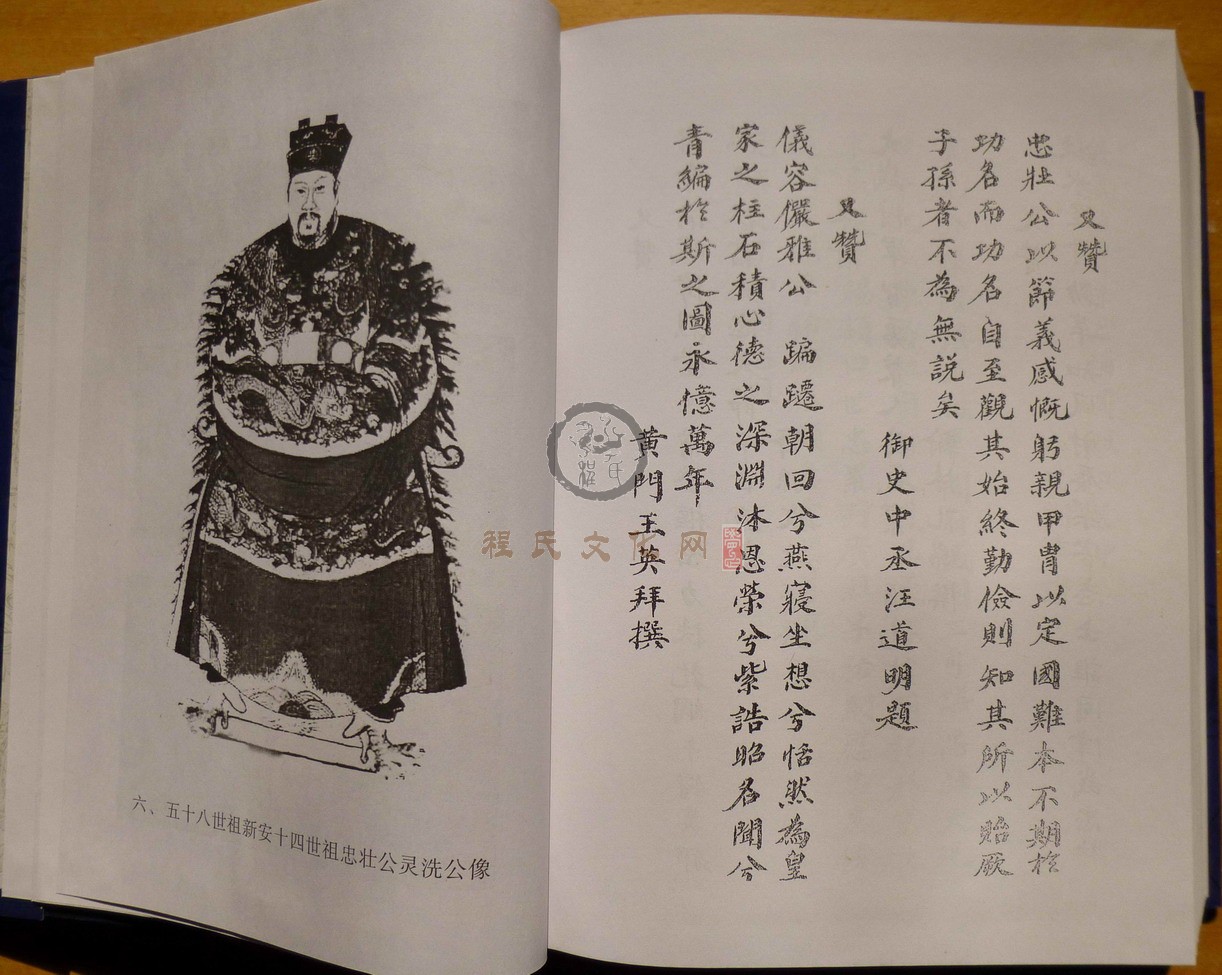 六、五十八世祖新安十四世祖忠壮公灵洗公像
又贊
忠壯公以節義感慨躬親甲冑以定國難本不期於
功名而功名自至觀其始終勤儉則知其所以貽厥
子孫者不為無說矣
御史中丞汪道明題
又贊
儀容儼雅公 蹁躚朝回兮燕寢坐想兮恬然為皇
家之柱石積心德之深淵沐恩榮兮紫誥昭名聞兮
青編於斯之圖永憶萬年
黃門王英拜撰
程氏文化网